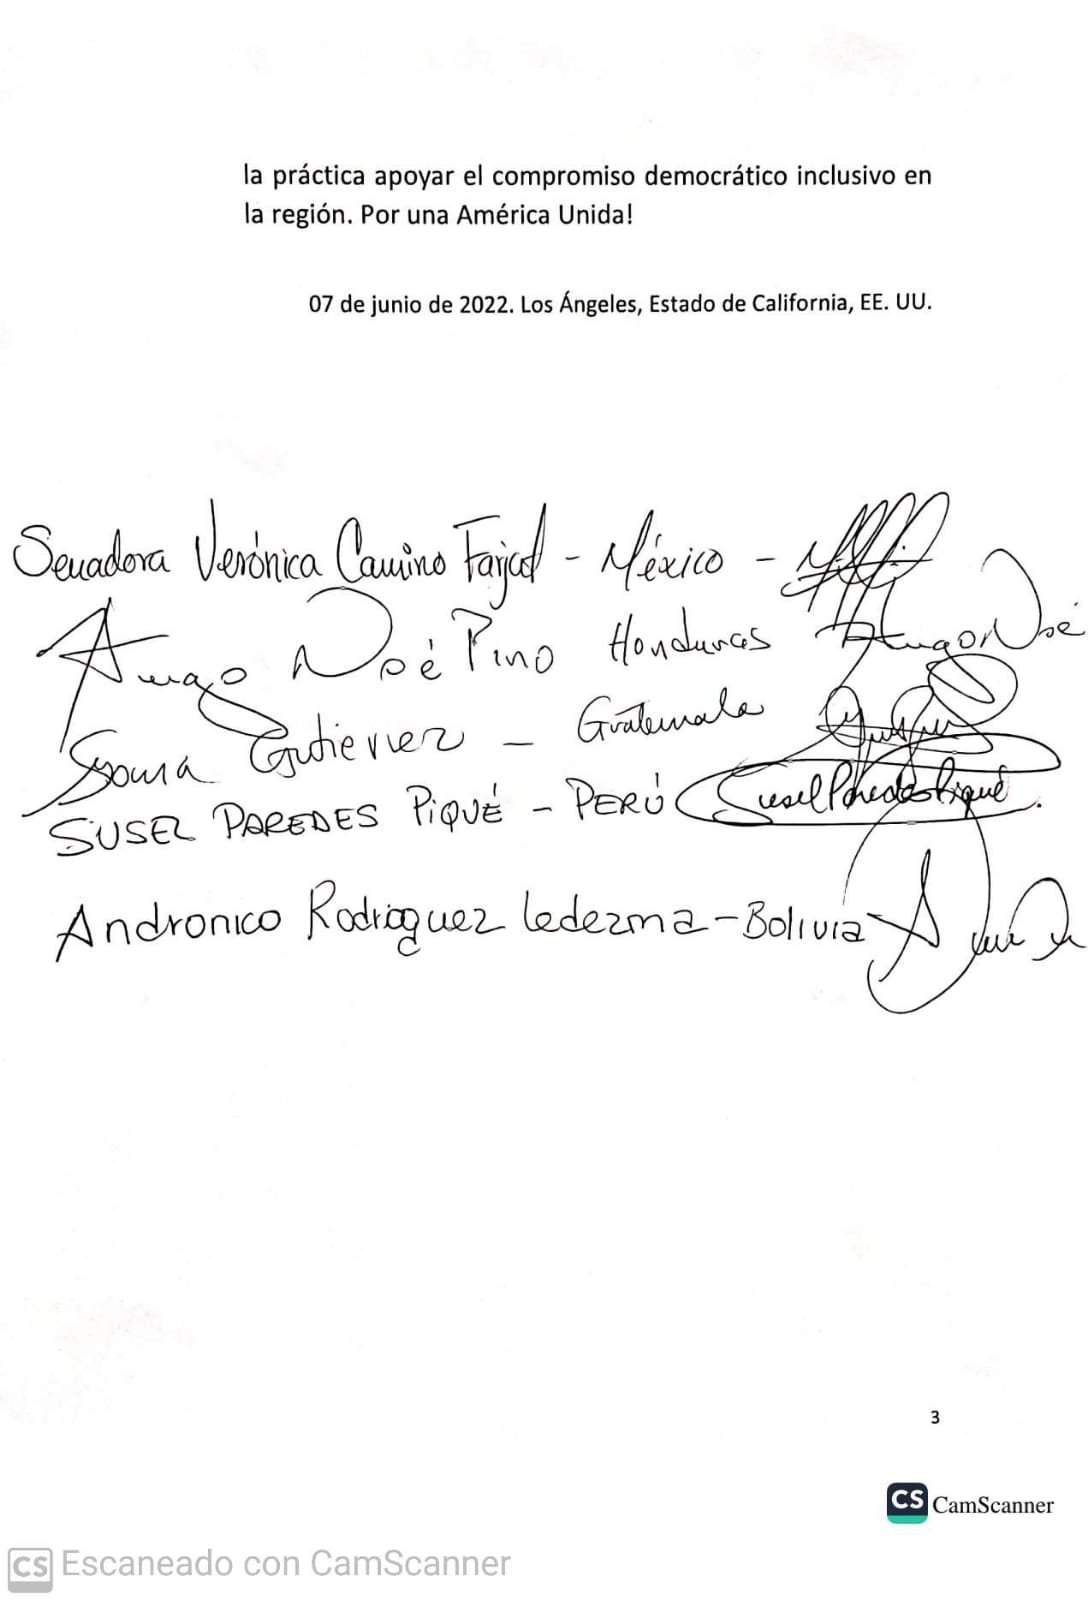 la práctica apoyar el compromiso democrático inclusivo en
la región. Por una América Unida!
07 de junio de 2022. Los Ángeles, Estado de California, EE. UU.
Senadora Verónica Camino Farjat - México -
Hugo Noé Pino Honduras Hugo Noé
Gutierrez - Guatemala
SUSEL PAREDES PIQUÉ - PERÚ Susel Paredes Piqué
Andronico Rodriguez Ledezma - Bolivia
3
CS CamScanner
CS Escaneado con CamScanner